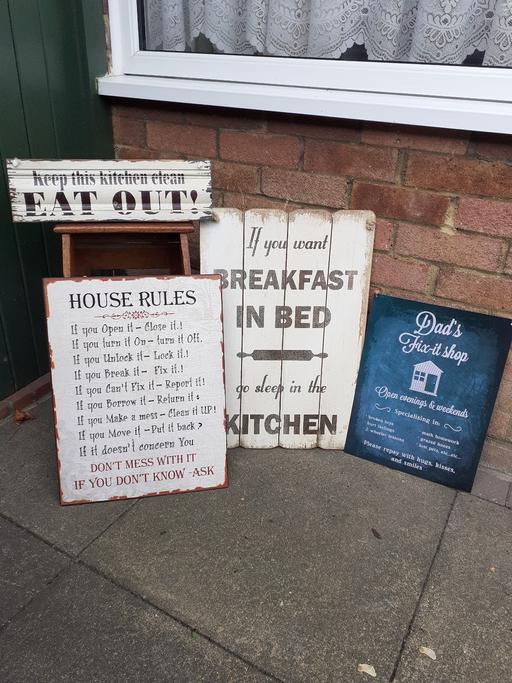 Keep this kitchen clean
EAT OUT!
HOUSE RULES
If you Open it - Close it.!
If you turn it On - turn it Off.
If you Unlock it - Lock it.!
If you Break it - Fix it.!
If you Can't Fix it - Report it!
If you Borrow it - Return it:
If you Make a mess - Clean it UP!
If you Move it - Put it back >
If it doesn't concern You
DON'T MESS WITH IT
IF YOU DON'T KNOW - ASK
If you want
BREAKFAST
IN BED
go sleep in the
KITCHEN
Dad's
Fix-it shop
Open evenings & weekends
Specialising in:
broken toys
hurt feelings
2-wheeler lessons
math homework
grazed knees
lost pets, etc...etc...
Please repay with hugs, kisses,
and smiles